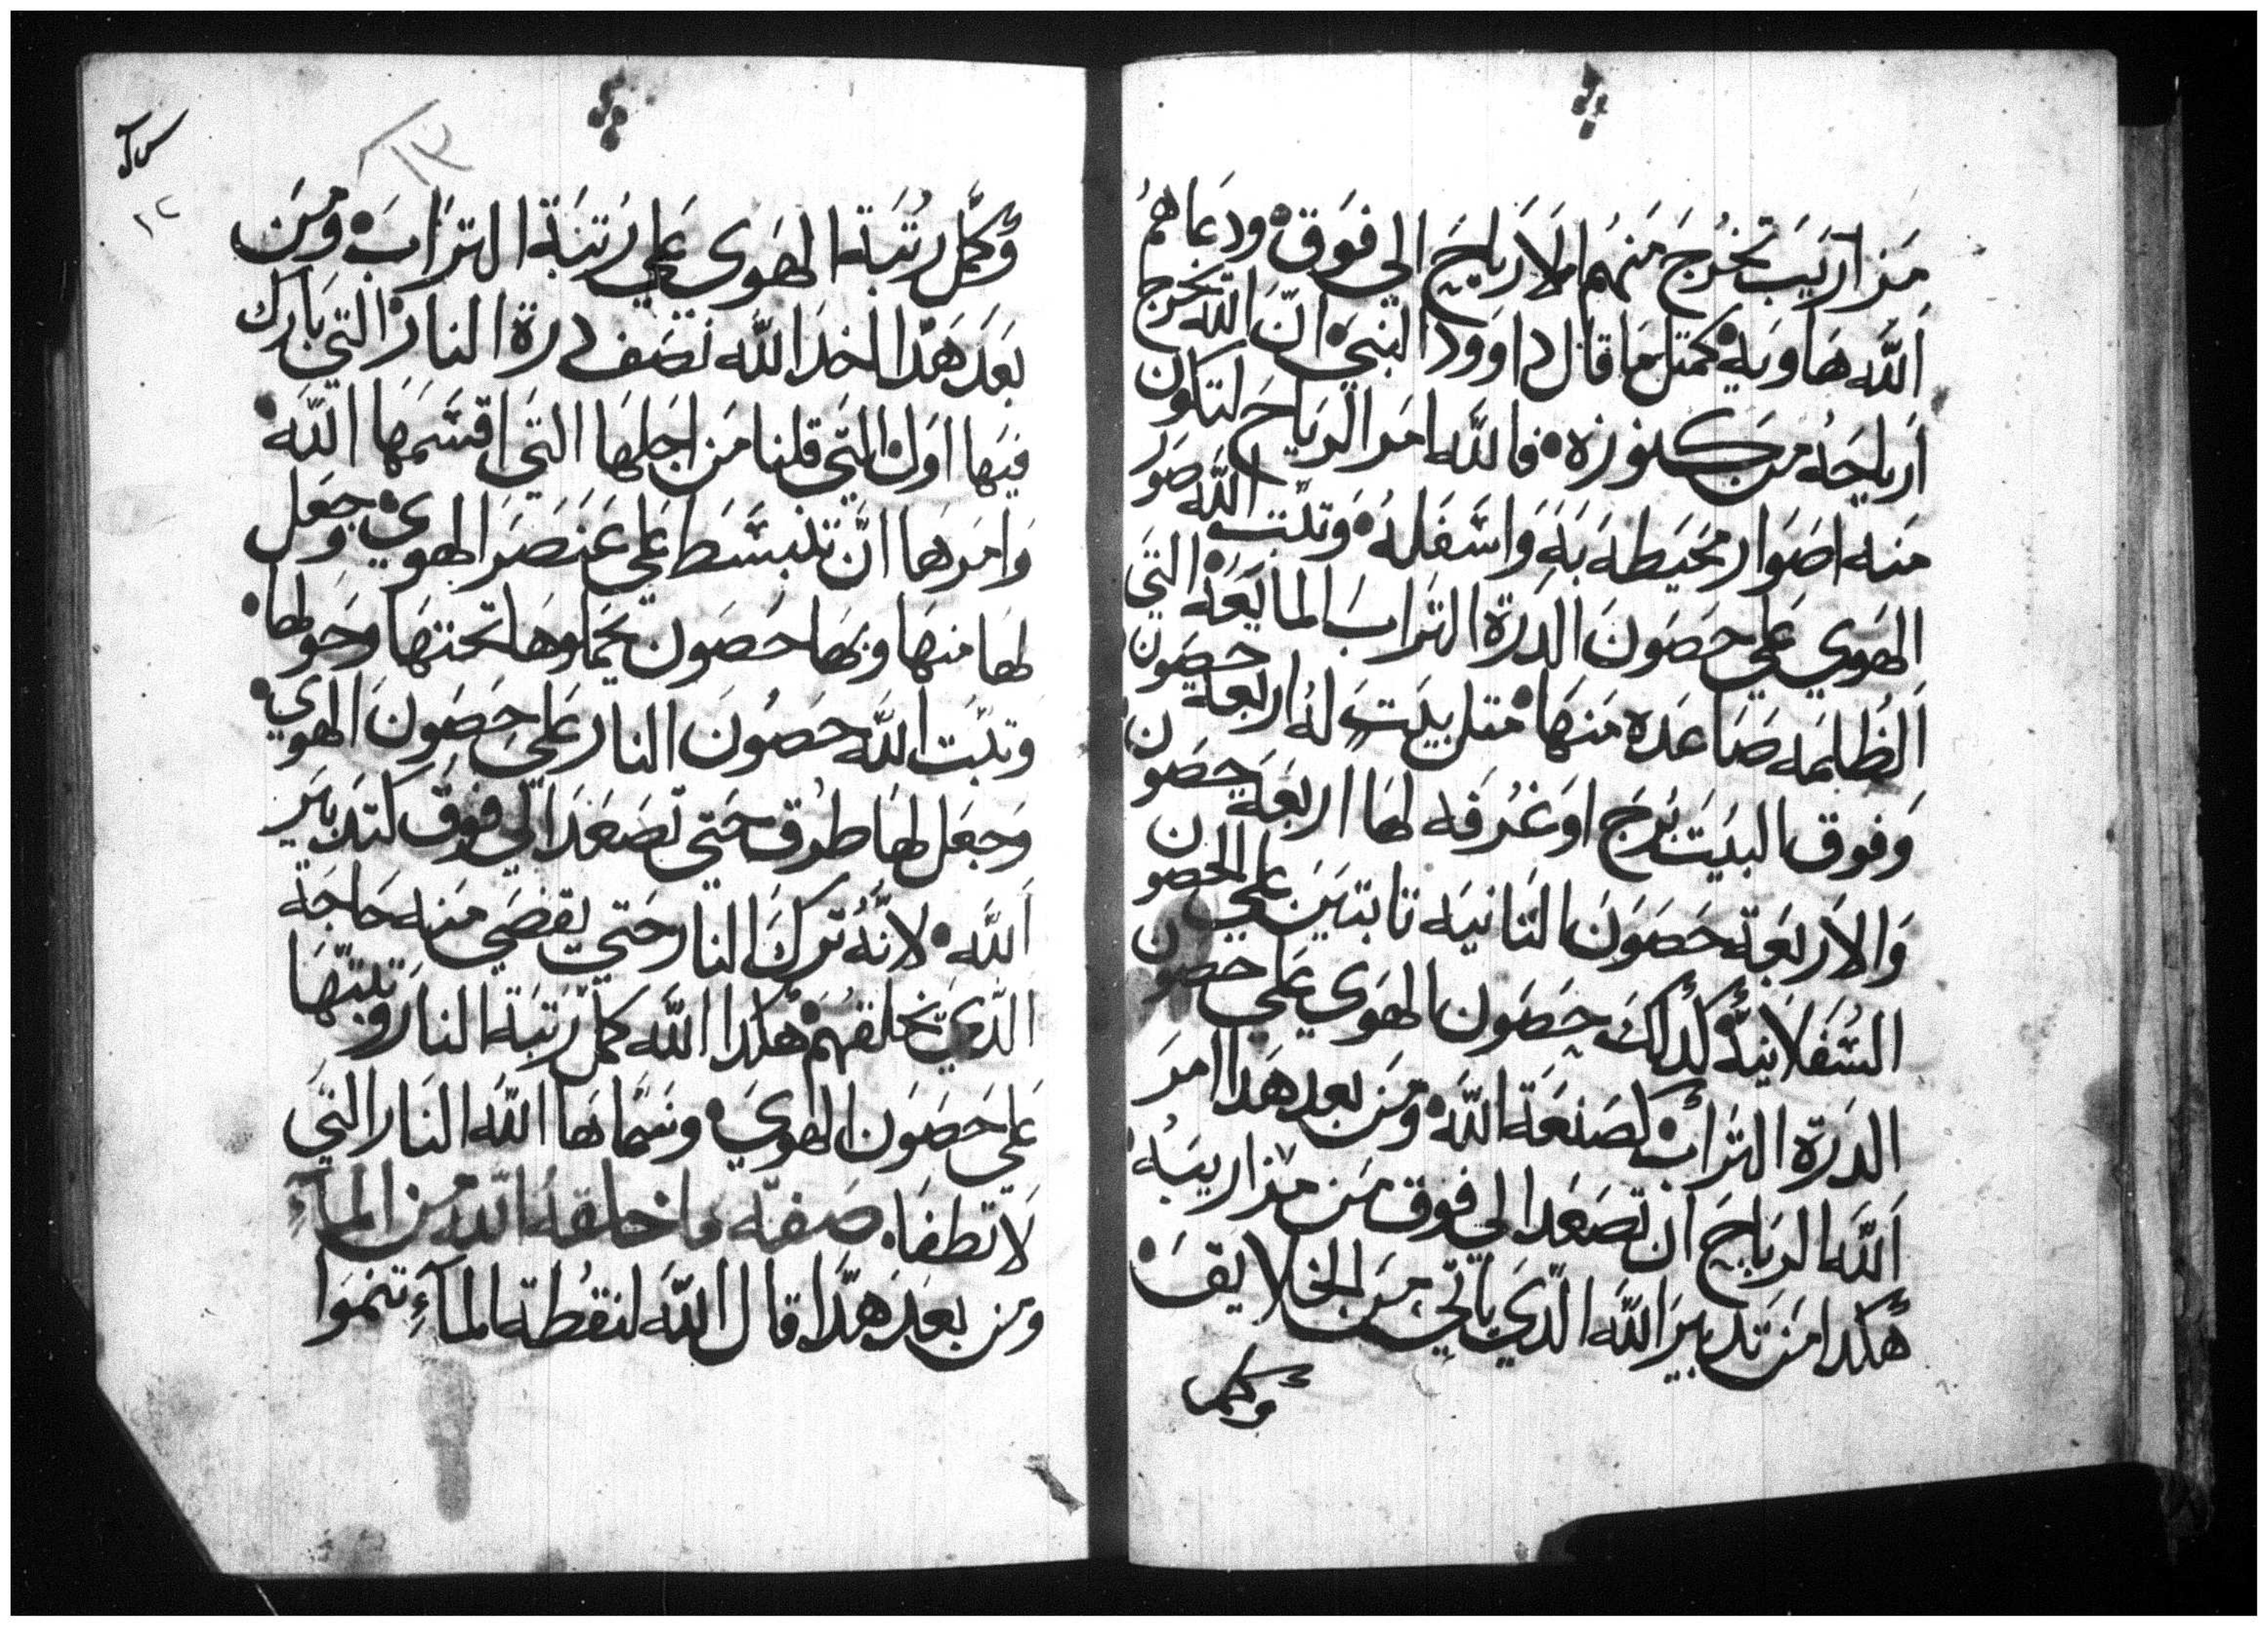 مَزاَرَيَبَ تَخْرُجَ مَنهُم الاَرياحَ الي فوَق۰ ودعَاهمُ
اَللَّه هَاوَيه۰ كمَتل مَا قال داوَود النبيَ۰ انّ اللَّه يخرج
اَرياحَهُ مَن كنوزه۰ فاللَّه امَر الرَياحَ لتكون
مَنه اصَوَار محَيَطه بَهَ وَاسَّفَلهُ۰ وَتبّت اللَّه صَور
الهَوي عَلي حصَونَ الدَرّة الترَابَ المايَعَة۰ التيَ
اَلظُالمَه صَاعَده مَنهَا۰ متل بيَتَ لهُ اربعَة حصَون
وَفوق البيَت بَرجَ اوَ غرُفه لهَا اربعَة حَصَون
وَالاَربعَة حَصَوَنَ التَانيَه تابتيَن عَلي الحَصون
السُفَلاَنيَّة كَدلكَ حِصَون الهَوي عَلي حصون
الدَرة الترَاب۰ كصَنعَة اللَّه۰ ومَن بعد هَدا امَر
اَللَّه الرَياحَ ان تصَعَد الي فوق مَن مَزاريبهُ۰
هَكدا مَن تدبيرَ اللَّه الدَّي ياتي مَن الخلايقَ۰
وكمل
س ك
١٢
وَكمَّل رتُبَة الهَوي عَلي رَتبَة الترَابَ۰ ومَن
بعَدَ هَدا اخدَ اللَّه نصَف درة النار۰ التي بَارك
فيَها اوَل۰ التي قلنا مَن اجَلهَا التيَ اقسَّمَهَا اللَّه۰
وَامَرهَا انَّ تنبسَّط عَلي عَنَصَرَ الهوي۰ وَجعَل
لهَا منهَا وبهَا حَصَون يحَملوهَا تحَتهَا وحَولها۰
وتبّتَ اللَّه حصَونَ النار عَلي حَصَونَ الهوَي۰
وَجعَل لهَا طرُق حَتي تصَعَدَ الي فوَق كتدَبيَر
اَللَّه۰ لانَّهُ ترَكَ النار حَتي يقضَي مَنه حَاجَة
الدَّي يخلقهُم۰ هَكدا اللَّه كمَّل رَتبَة النار وَتبتّهَا
عَلي حَصَوَن الهوَيَ۰ وسَمَّاهَا اللَّه النَار التيَ
لاَ تطفَا۰ صَفة ما خلقهُ اللَّه مَن المآءِ
ومَن بعَدَ هَدَا قال اللَّه لنقطة المآءِ تنموَا